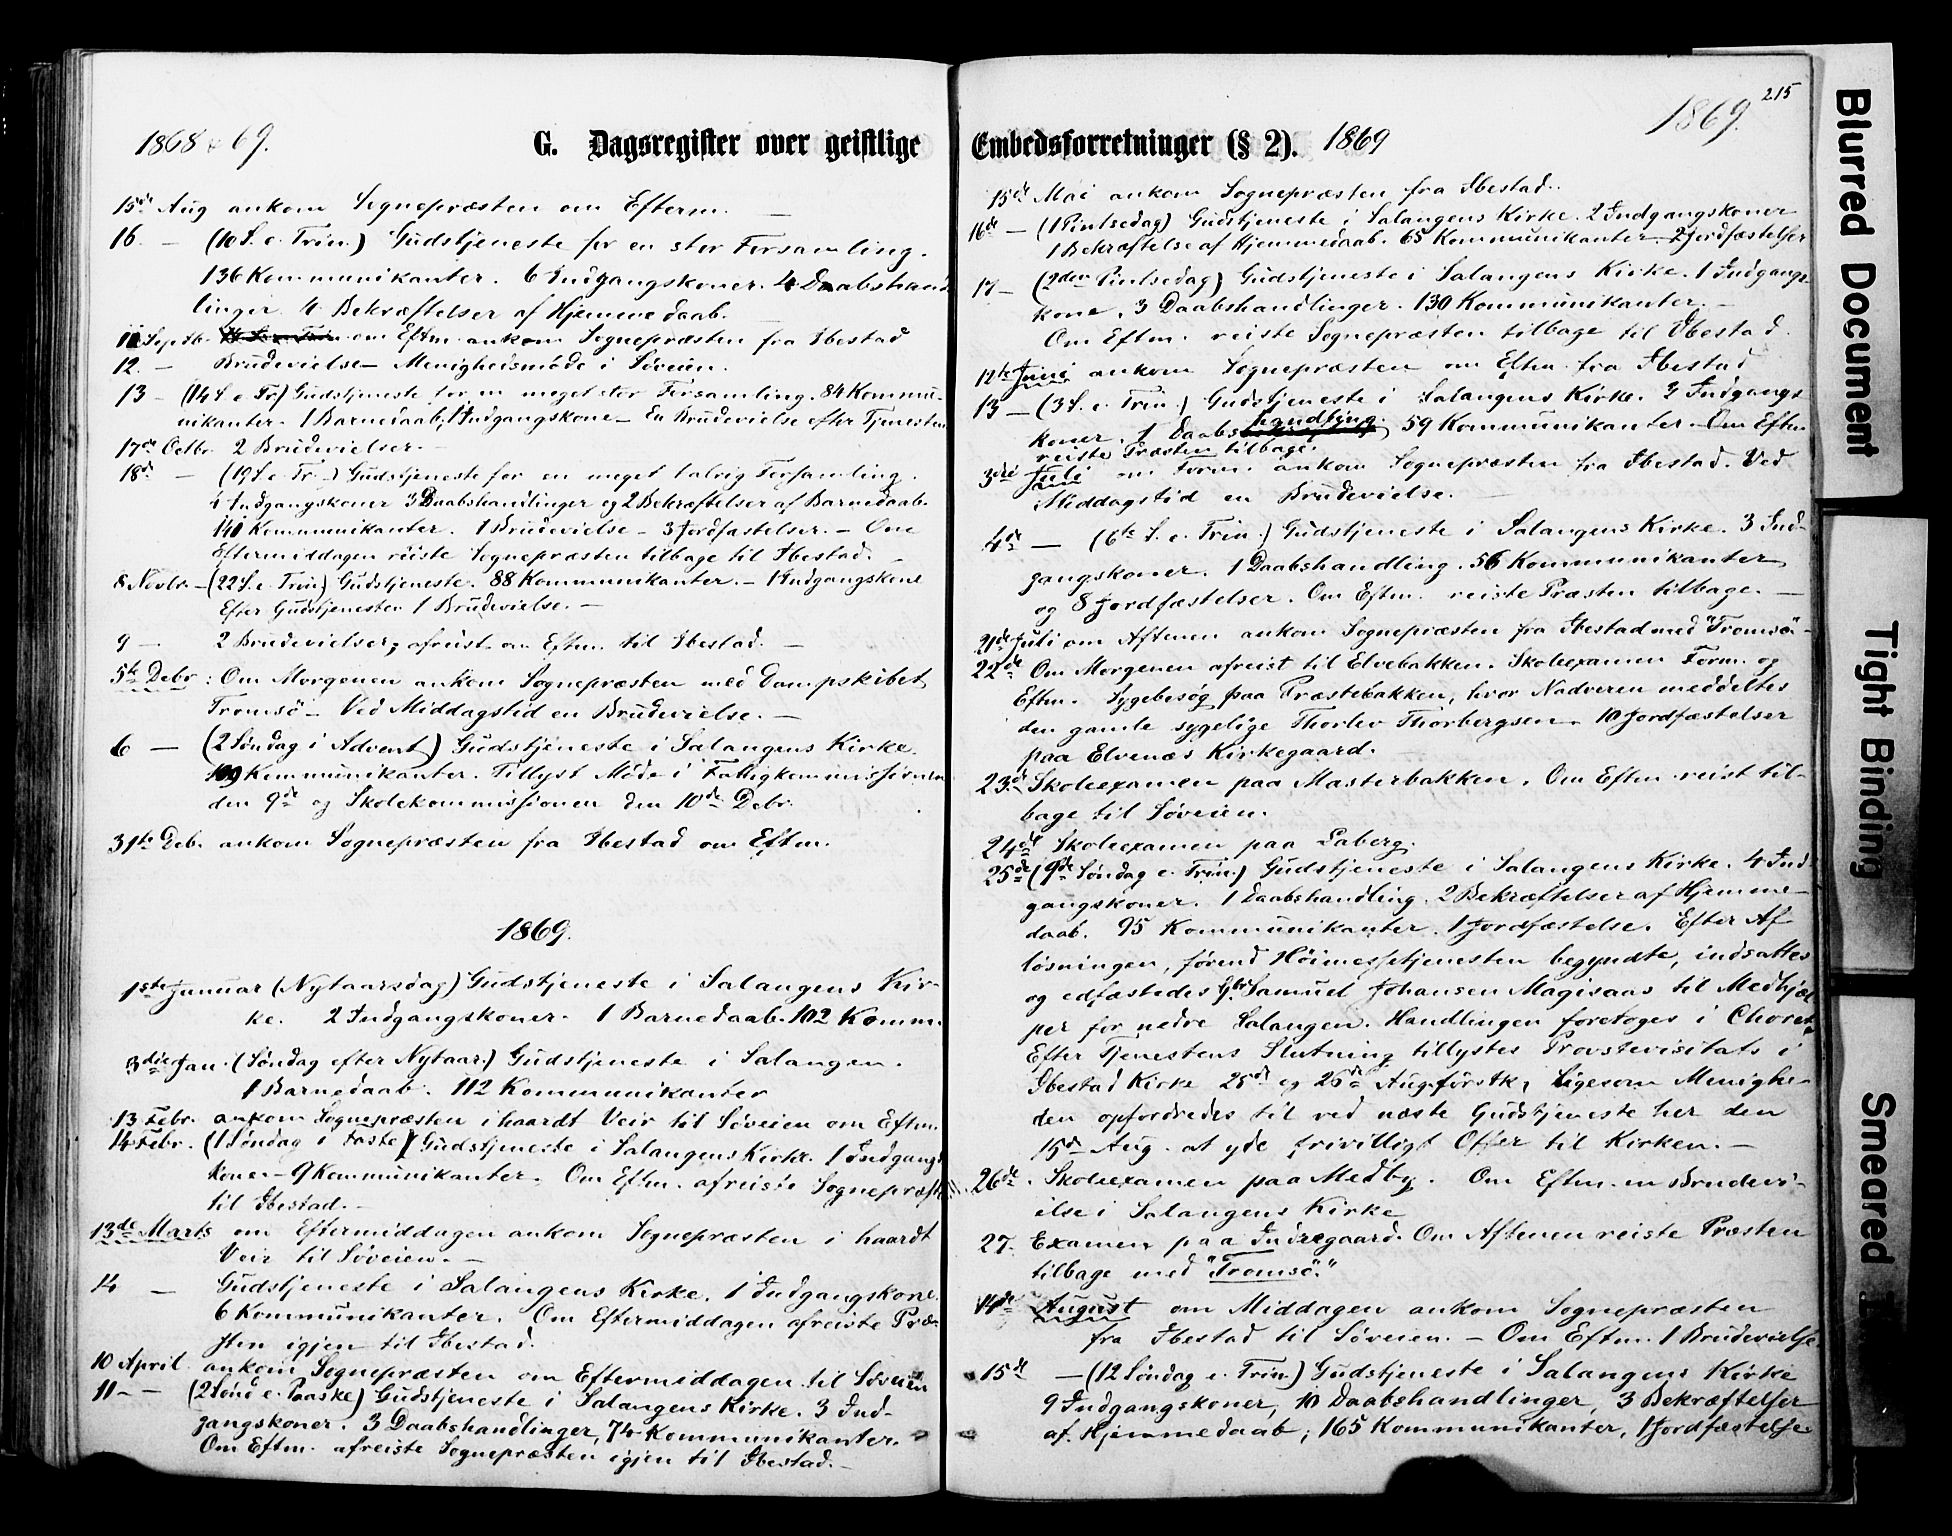 1868 & 69.
G. Dagsregister over geistlige
15de Aug ankom Sognepræsten om Efterm.
16. — (10 S. e. Trin.) Gudstjeneste for en stor Forsamling.
136 Kommunikanter. 6 Indgangskoner. 4 Daabshand-
linger. 4 Bekræftelser af Hjemmedaab.
11 Septb. om Eftm. ankom Sognepræsten fra Ibestad
12. — Brudevielse — Menighedsmøde i Søveien.
13 — (14 S. e. Tr) Gudstjeneste for en meget stor Forsamling. 84 Kommu-
nikanter. 1 Barnedaab, 1 Indgangskone — En Brudevielse efter Tjenesten
17de Octbr. 2 Brudevielser.
18de — (19 S. e. Tr.) Gudstjeneste for en meget talrig Forsamling.
Indgangskoner 3 Daabshandlinger og 2 Bekræftelser af Barnedaab.
140 Kommunikanter. 1 Brudevielse — 3 Jordfæstelser. — Om
Eftermiddagen reiste Sognepræsten tilbage til Ibestad. —
8 Novbr. — (22 S. e. Trin) Gudstjeneste. 88 Kommunikanter. — 1 Indgangskone
Efter Gudstjenesten 1 Brudevielse. —
9 — 2 Brudevielser, afreist om Eftm. til Ibestad. —
5te Debr: Om Morgenen ankom Sognepræsten med Dampskibet
Tromsö — Ved Middagstid en Brudevielse. —
6 — (2 Søndag i Advent) Gudstjeneste i Salangens Kirke.
109 Kommunikanter. Tillyst Møde i Fattigkommissionen
den 9de og Skolekommissionen den 10de Debr.
31te Deb. ankom Sognepræsten fra Ibestad om Eftm.
1869.
1ste Januar (Nytaarsdag) Gudstjeneste i Salangens Kir-
ke. 2 Indgangskoner. 1 Barnedaab. 102 Komm.
3die Jan. (Søndag efter Nytaar.) Gudstjeneste i Salangen.
1 Barnedaab. 112 Kommunikanter
13 Febr. ankom Sognepræsten i haardt Veir til Søveien om Eftm.
14 Febr. (1 Søndag i Faste) Gudstjeneste i Salangens Kirke. 1 Indgangs-
kone — 9 Kommunikanter. Om Eftm. afreiste Sognepræsten
til Ibestad. —
13de Marts om Eftermiddagen ankom Sognepræsten i haardt
Veir til Søveien. —
14 — Gudstjeneste i Salangens Kirke. 1 Indgangskone.
6 Kommunikanter. Om Eftermiddagen afreiste Præ-
sten igjen til Ibestad.
10 April. ankom Sognepræsten om Eftermiddagen til Søveien
11 — (2 Sønd e. Paaske) Gudstjeneste i Salangens Kirke. 3 Ind-
gangskoner. 3 Daabshandlinger, 74 Kommunikanter.
Om Eftm. afreiste Sognepræsten igjen til Ibestad. —
215
1869.
Embedsforretninger (§ 2). 1869
15de Mai ankom Sognepræsten fra Ibestad.
16de — (1 Pintsedag) Gudstjeneste i Salangens Kirke. 2 Indgangskoner
1 Bekræftelse af Hjemmedaab. 65 Kommunikanter. 2 Jordfæstelser
17 — (2den Pintsedag) Gudstjeneste i Salangens Kirke. 1 Indgangs-
kone, 3 Daabshandlinger. 130 Kommunikanter. —
Om Eftm. reiste Sognepræsten tilbage til Ibestad.
12te Juni ankom Sognepræsten om Eftm. fra Ibestad
13 — (3 S. e. Trin.) Gudstjeneste i Salangens Kirke. 3 Indgangs-
koner. 1 Daabshandling. 59 Kommunikanter — Om Eftm.
reiste Præsten tilbage.
3die Juli om Form. ankom Sognepræsten fra Ibestad. Ved
Middagstid en Brudevielse.
4de — (6te S. e. Trin.) Gudstjeneste i Salangens Kirke. 3 Ind-
gangskoner. 1 Daabshandling. 56 Kommunikanter
og 8 Jordfæstelser. Om Eftm. reiste Præsten tilbage. —
21de Juli om Aftenen ankom Sognepræsten fra Ibestad med "Tromsö"
22de Om Morgenen afreist til Elvebakken. Skoleexamen Form. og
Eftm. Sygebesøg paa Præstebakken, hvor Nadveren meddeltes
den gamle sygelige Thorlev Thorbergsen. 10 Jordfæstelser
paa Elvenæs Kirkegaard.
23de Skoleexamen paa Masterbakken. Om Eftm. reist til-
bage til Søveien.
24de Skoleexamen paa Laberg.
25de (9de Søndag e. Trin.) Gudstjeneste i Salangens Kirke. 4 Ind-
gangskoner. 1 Daabshandling. 2 Bekræftelser af Hjemme-
daab. 95 Kommunikanter. 1 Jordfæstelse. Efter Af-
løsningen, førend Høimessetjenesten begyndte, indsattes
og edfæstedes Gbr. Samuel Johansen Magisaas til Medhjæl-
per for nedre Salangen. Handlingen foretoges i Choret.
Efter Tjenestens Slutning tillystes Provstevisitats i
Ibestad Kirke 25de og 26de Aug. førstk, ligesom Menighe-
den opfordredes til ved næste Gudstjeneste her den
15de Aug. at yde frivilligt Offer til Kirken. —
26de. Skoleexamen paa Medby. Om Eftm. en Brudevi-
else i Salangens Kirke
27. Examen paa Indregaard. Om Aftenen reiste Præsten
tilbage med "Tromsö."
14de August om Middagen ankom Sognepræsten
fra Ibestad til Søveien. — Om Eftm. 1 Brudevielse
15de — (12 Søndag e. Trin.) Gudstjeneste i Salangens Kirke
9 Indgangskoner, 10 Daabshandlinger, 3 Bekræftelser
af Hjemmedaab, 165 Kommunikanter, 1 Jordfæstelse
Blurred Document
Tight Binding
Smeared